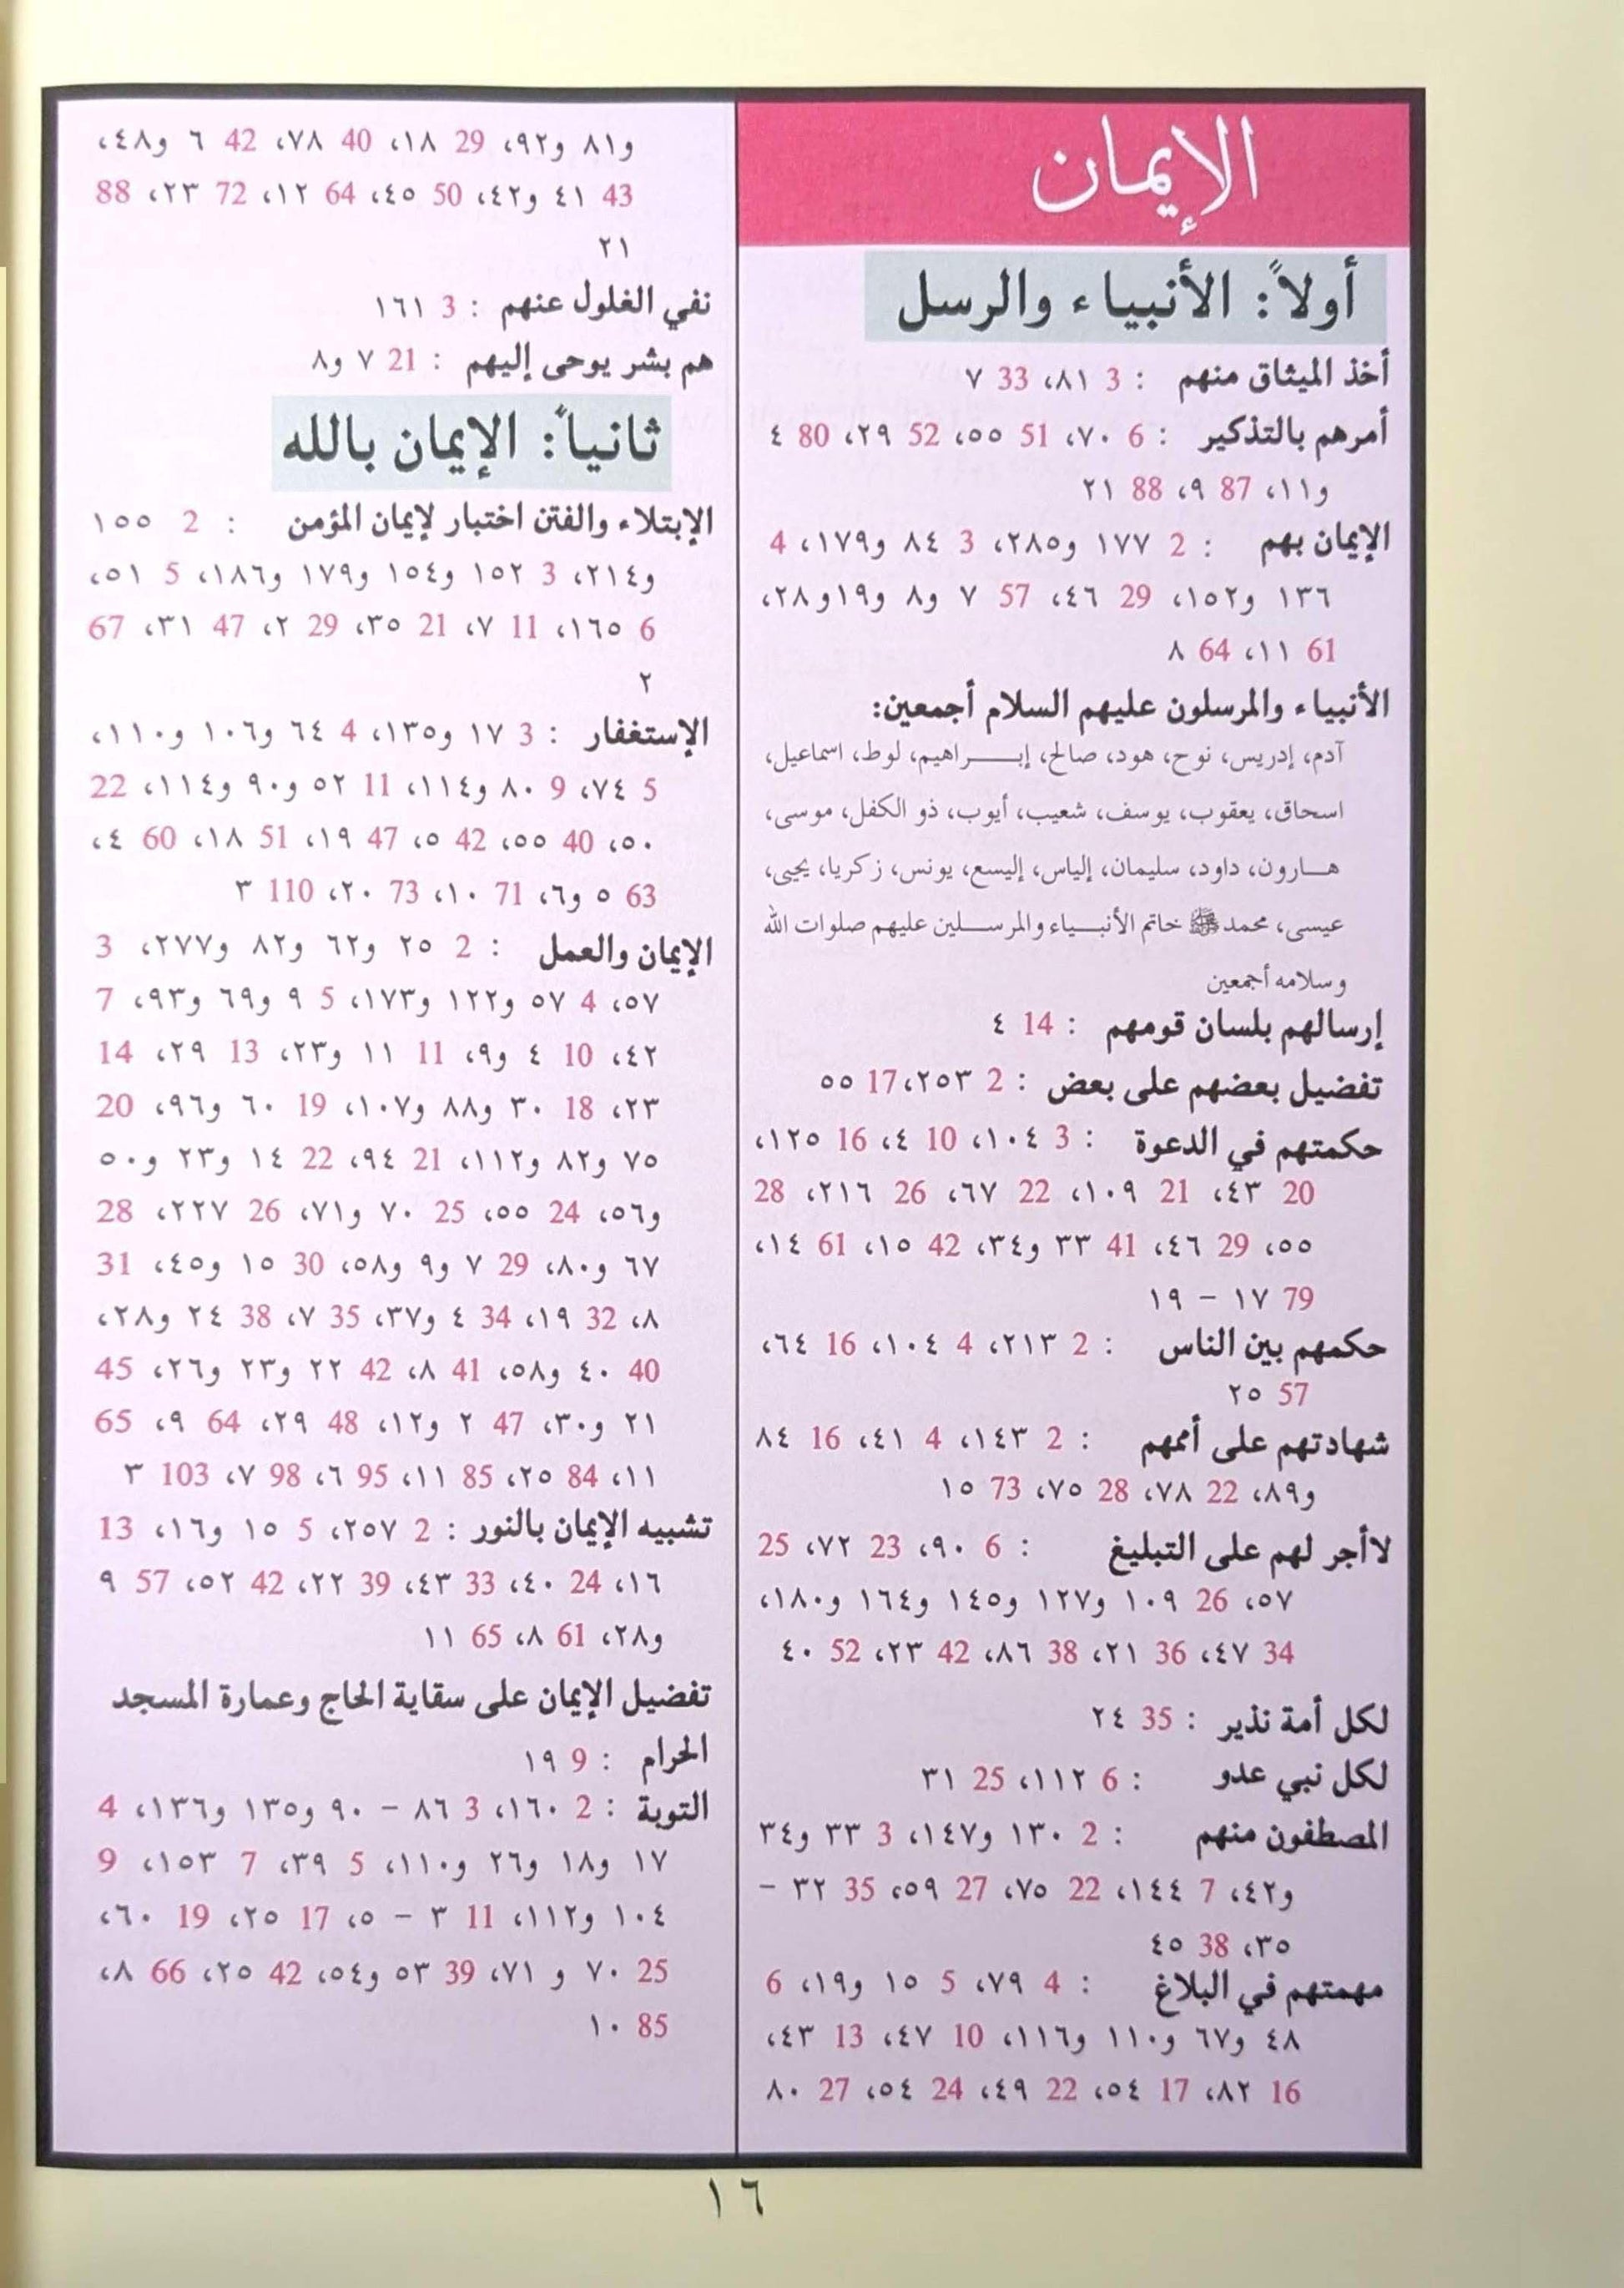 الإيمان
أولاً: الأنبياء والرسل
أخذ الميثاق منهم : 3 ٨١، 33 ٧
أمرهم بالتذكير : 6 ٧٠، 51 ٥٥، 52 ٢٩، 80 ٤
و١١، 87 ٩، 88 ٢١
الإيمان بهم : 2 ١٧٧ و٢٨٥، 3 ٨٤ و١٧٩، 4
١٣٦ و١٥٢، 29 ٤٦، 57 ٧ و٨ و١٩و٢٨،
61 ١١، 64 ٨
الأنبياء والمرسلون عليهم السلام أجمعين:
آدم، إدريس، نوح، هود، صالح، إبـراهيم، لوط، اسماعيل،
اسحاق، يعقوب، يوسف، شعيب، أيوب، ذو الكفل، موسى،
هـارون، داود، سليمان، إلياس، إليسع، يونس، زكريا، يحيى،
عيسى، محمد ﷺ خاتم الأنبـياء والمرسـلين عليهم صلوات الله
وسلامه أجمعين
إرسالهم بلسان قومهم : 14 ٤
تفضيل بعضهم على بعض : 2 ٢٥٣، 17 ٥٥
حكمتهم في الدعوة : 3 ١٠٤، 10 ٤، 16 ١٢٥،
20 ٤٣، 21 ١٠٩، 22 ٦٧، 26 ٢١٦، 28
٥٥، 29 ٤٦، 41 ٣٣ و٣٤، 42 ١٥، 61 ١٤،
79 ١٧ – ١٩
حكمهم بين الناس : 2 ٢١٣، 4 ١٠٤، 16 ٦٤،
57 ٢٥
شهادتهم على أممهم : 2 ١٤٣، 4 ٤١، 16 ٨٤
و٨٩، 22 ٧٨، 28 ٧٥، 73 ١٥
لاأجر لهم على التبليغ : 6 ٩٠، 23 ٧٢، 25
٥٧، 26 ١٠٩ و١٢٧ و١٤٥ و١٦٤ و١٨٠،
34 ٤٧، 36 ٢١، 38 ٨٦، 42 ٢٣، 52 ٤٠
لكل أمة نذير : 35 ٢٤
لكل نبي عدو : 6 ١١٢، 25 ٣١
المصطفون منهم : 2 ١٣٠ و١٤٧، 3 ٣٣ و٣٤
و٤٢، 7 ١٤٤، 22 ٧٥، 27 ٥٩، 35 ٣٢ –
٣٥، 38 ٤٥
مهمتهم في البلاغ : 4 ٧٩، 5 ١٥ و١٩، 6
٤٨ و٦٧ و١١٠ و١١٦، 10 ٤٧، 13 ٤٣،
16 ٨٢، 17 ٥٤، 22 ٤٩، 24 ٥٤، 27 ٨٠
و٨١ و٩٢، 29 ١٨، 40 ٧٨، 42 ٦ و٤٨،
43 ٤١ و٤٢، 50 ٤٥، 64 ١٢، 72 ٢٣، 88
٢١
نفي الغلول عنهم : 3 ١٦١
هم بشر يوحى إليهم : 21 ٧ و٨
ثانياً: الإيمان بالله
الإبتلاء والفتن اختبار لإيمان المؤمن : 2 ١٥٥
و٢١٤، 3 ١٥٢ و١٥٤ و١٧٩ و١٨٦، 5 ٥١،
6 ١٦٥، 11 ٧، 21 ٣٥، 29 ٢، 47 ٣١، 67
٢
الإستغفار : 3 ١٧ و١٣٥، 4 ٦٤ و١٠٦ و١١٠،
5 ٧٤، 9 ٨٠ و١١٤، 11 ٥٢ و٩٠ و١١٤، 22
٥٠، 40 ٥٥، 42 ٥، 47 ١٩، 51 ١٨، 60 ٤،
63 ٥ و٦، 71 ١٠، 73 ٢٠، 110 ٣
الإيمان والعمل : 2 ٢٥ و٦٢ و٨٢ و٢٧٧، 3
٥٧، 4 ٥٧ و١٢٢ و١٧٣، 5 ٩ و٦٩ و٩٣، 7
٤٢، 10 ٤ و٩، 11 ١١ و٢٣، 13 ٢٩، 14
٢٣، 18 ٣٠ و٨٨ و١٠٧، 19 ٦٠ و٩٦، 20
٧٥ و٨٢ و١١٢، 21 ٩٤، 22 ١٤ و٢٣ و٥٠
و٥٦، 24 ٥٥، 25 ٧٠ و٧١، 26 ٢٢٧، 28
٦٧ و٨٠، 29 ٧ و٩ و٥٨، 30 ١٥ و٤٥، 31
٨، 32 ١٩، 34 ٤ و٣٧، 35 ٧، 38 ٢٤ و٢٨،
40 ٤٠ و٥٨، 41 ٨، 42 ٢٢ و٢٣ و٢٦، 45
٢١ و٣٠، 47 ٢ و١٢، 48 ٢٩، 64 ٩، 65
١١، 84 ٢٥، 85 ١١، 95 ٦، 98 ٧، 103 ٣
تشبيه الإيمان بالنور : 2 ٢٥٧، 5 ١٥ و١٦، 13
١٦، 24 ٤٠، 33 ٤٣، 39 ٢٢، 42 ٥٢، 57 ٩
و٢٨، 61 ٨، 65 ١١
تفضيل الإيمان على سقاية الحاج وعمارة المسجد
الحرام : 9 ١٩
التوبة : 2 ١٦٠، 3 ٨٦ – ٩٠ و١٣٥ و١٣٦، 4
١٧ و١٨ و٢٦ و١١٠، 5 ٣٩، 7 ١٥٣، 9
١٠٤ و١١٢، 11 ٣ – ٥، 17 ٢٥، 19 ٦٠،
25 ٧٠ و ٧١، 39 ٥٣ و٥٤، 42 ٢٥، 66 ٨،
85 ١٠
١٦